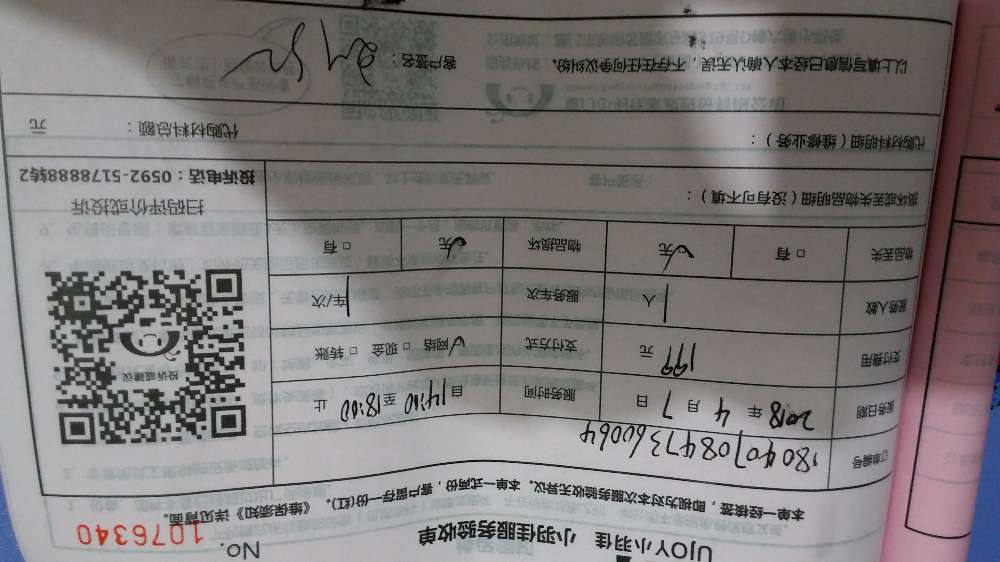 UJOY小羽佳 小羽佳服务验收单 No. 1076340
本单一经核签，即视为对本次服务验收无异议。本单一式两份，客户留存一份(红)。《维保须知》详见背面。
订单编号 1804070847360064
服务日期 2018 年 4 月 7 日 服务时间 自 14:00 至 18:00 止
支付费用 199 元 支付方式 ☑ 网络 □ 现金 □ 转账
服务人数 1 人 服务车次 1 车/次
物品丢失 □ 有 ☑ 无 物品损坏 ☑ 无 □ 有
投诉或建议
损坏或丢失物品明细（没有可不填）：
扫码评价或投诉
投诉电话：0592-5178888转2
代购材料明细（维修业务）：
代购材料总额： 元
以上填写信息已经本人确认无误，不存在任何争议纠纷。 客户签名：